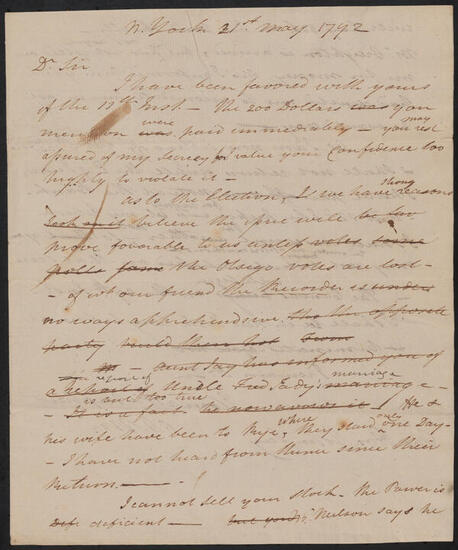 N. York 21st May 1792
Dr Sir
I have been favored with yours
of the 18th Inst. — The 200 Dollars was you
mention was were paid immediately — you may rest
assured of my Secrecy for I value your Confidence too
highly to violate it —
As to the Election, we have strong reasons
believe the issue will be
more favorable to us unless votes
the Otsego votes are lost —
— of wt our friend the Recorder is under
no ways apprehensive
— Aunt Jay has informed you of
report of Uncle Fred. Jay's marriage marriage —
is but too true
— It is a fact he now avows it / He &
his wife have been to Rye, where they staid only one Day —
— I have not heard from them since their
Return. —
I cannot sell your Stock — the Power is
Def deficient — but you Mr. Neilson says he